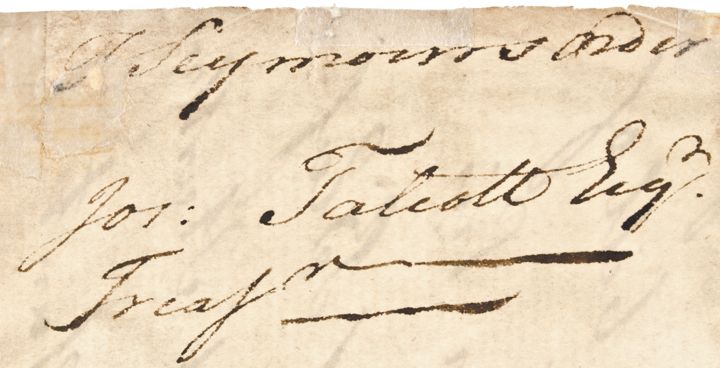 T Seymours order
Jos: Talcott Esqr.
Treasr